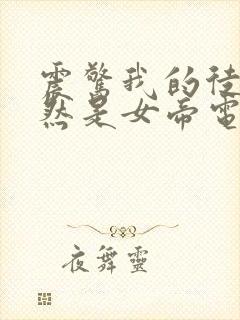 震驚我的徒
然是女帝電
夜舞靈